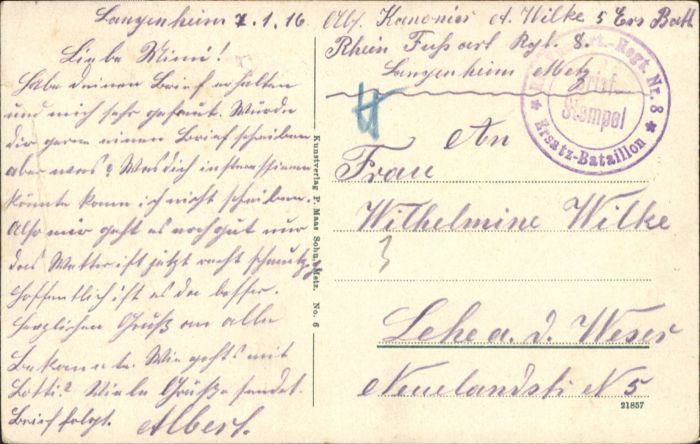 Langenheim 7.1.16
Liebe Mimi!
Habe deinen Brief erhalten
und mich sehr gefreut. Würde
dir gerne einen Brief schreiben
aber was? Was dich interessieren
könnte kann ich nicht schreiben.
Also mir geht es noch gut nur
das Wetter ist jetzt recht schmutzig
hoffentlich ist es da besser.
Herzlichen Gruß an alle
Bekannte. Wie gehts mit
Lotti? Viele Grüße sendet
Brief folgt. Albert.
Kunstverlag P. Maas Sohn, Metz. No. 6
Abs. Kanonier A. Wilke 5 Ers Batt.
Rhein Fussart Rgt. 8.
Langenheim Metz
Art.-Regt. Nr. 8
Brief
Stempel
★ Ersatz-Bataillon ★
An
Frau
Wilhelmine Wilke
3
Lehe a. d. Weser
Neuelandstr N 5
21857